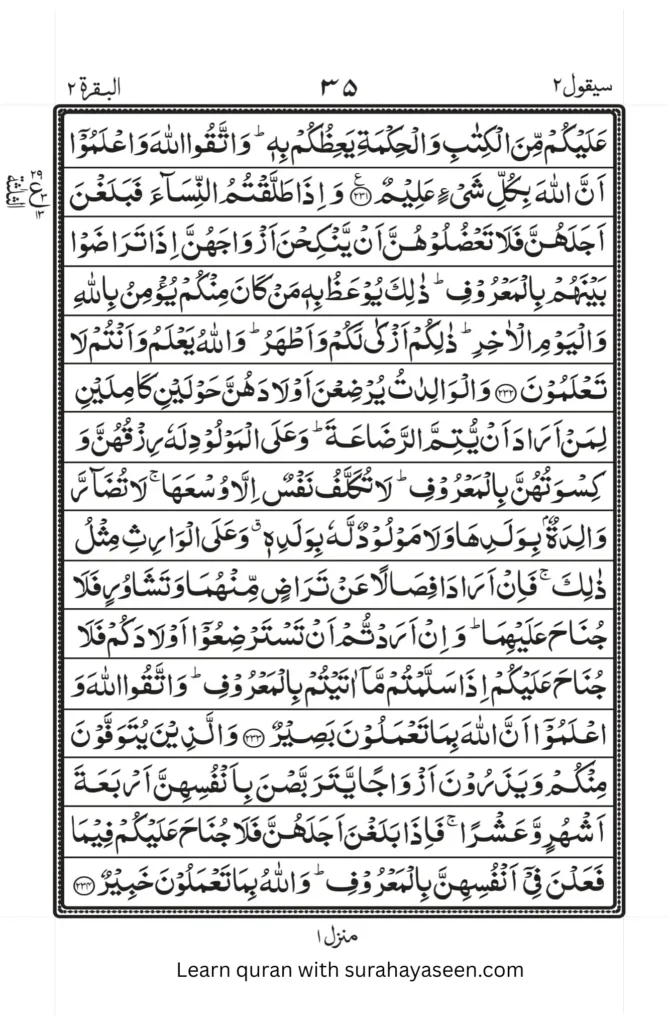 سيقول ٢ ٣٥ البقرة ٢
عَلَيۡكُمۡ مِّنَ الۡكِتٰبِ وَالۡحِكۡمَةِ يَعِظُكُمۡ بِهٖ ؕ وَاتَّقُوا اللّٰهَ وَاعۡلَمُوۡٓا
اَنَّ اللّٰهَ بِكُلِّ شَىۡءٍ عَلِيۡمٌ ﴿۲۳۱﴾ ع وَاِذَا طَلَّقۡتُمُ النِّسَآءَ فَبَلَغۡنَ
۲۹
ع
۱۳
الثلثة
اَجَلَهُنَّ فَلَا تَعۡضُلُوۡهُنَّ اَنۡ يَّنۡكِحۡنَ اَزۡوَاجَهُنَّ اِذَا تَرَاضَوۡا
بَيۡنَهُمۡ بِالۡمَعۡرُوۡفِ ؕ ذٰلِكَ يُوۡعَظُ بِهٖ مَنۡ كَانَ مِنۡكُمۡ يُؤۡمِنُ بِاللّٰهِ
وَالۡيَوۡمِ الۡاٰخِرِ ؕ ذٰلِكُمۡ اَزۡكٰى لَكُمۡ وَاَطۡهَرُ ؕ وَاللّٰهُ يَعۡلَمُ وَاَنۡتُمۡ لَا
تَعۡلَمُوۡنَ ﴿۲۳۲﴾ وَالۡوَالِدٰتُ يُرۡضِعۡنَ اَوۡلَادَهُنَّ حَوۡلَيۡنِ كَامِلَيۡنِ
لِمَنۡ اَرَادَ اَنۡ يُّتِمَّ الرَّضَاعَةَ ؕ وَعَلَى الۡمَوۡلُوۡدِ لَهٗ رِزۡقُهُنَّ وَ
كِسۡوَتُهُنَّ بِالۡمَعۡرُوۡفِ ؕ لَا تُكَلَّفُ نَفۡسٌ اِلَّا وُسۡعَهَا ۚ لَا تُضَآرَّ
وَالِدَةٌ ۢ بِوَلَدِهَا وَلَا مَوۡلُوۡدٌ لَّهٗ بِوَلَدِهٖ ٝ وَعَلَى الۡوَارِثِ مِثۡلُ
ذٰلِكَ ۚ فَاِنۡ اَرَادَا فِصَالًا عَنۡ تَرَاضٍ مِّنۡهُمَا وَتَشَاوُرٍ فَلَا
جُنَاحَ عَلَيۡهِمَا ؕ وَاِنۡ اَرَدْتُّمۡ اَنۡ تَسۡتَرۡضِعُوۡٓا اَوۡلَادَكُمۡ فَلَا
جُنَاحَ عَلَيۡكُمۡ اِذَا سَلَّمۡتُمۡ مَّآ اٰتَيۡتُمۡ بِالۡمَعۡرُوۡفِ ؕ وَاتَّقُوا اللّٰهَ وَ
اعۡلَمُوۡٓا اَنَّ اللّٰهَ بِمَا تَعۡمَلُوۡنَ بَصِيۡرٌ ﴿۲۳۳﴾ وَالَّذِيۡنَ يُتَوَفَّوۡنَ
مِنۡكُمۡ وَيَذَرُوۡنَ اَزۡوَاجًا يَّتَرَبَّصۡنَ بِاَنۡفُسِهِنَّ اَرۡبَعَةَ
اَشۡهُرٍ وَّعَشۡرًا ۚ فَاِذَا بَلَغۡنَ اَجَلَهُنَّ فَلَا جُنَاحَ عَلَيۡكُمۡ فِيۡمَا
فَعَلۡنَ فِىۡٓ اَنۡفُسِهِنَّ بِالۡمَعۡرُوۡفِ ؕ وَاللّٰهُ بِمَا تَعۡمَلُوۡنَ خَبِيۡرٌ ﴿۲۳۴﴾
منزل ١
Learn quran with surahayaseen.com